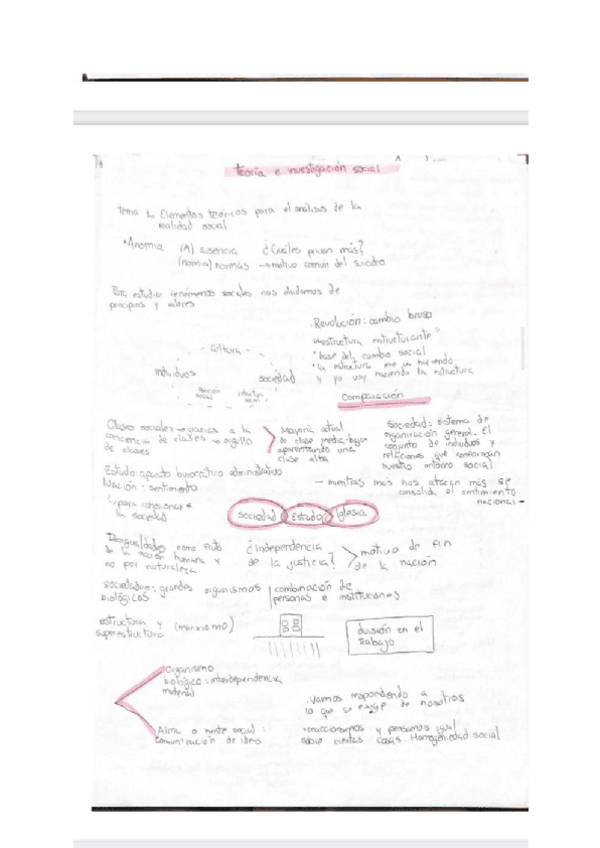 Teoría e investigación social
Tema 1. Elementos teóricos para el análisis de la
realidad social
*Anomia (A) ausencia ¿Cuáles pesan más?
(nomia) normas → motivo común del suicidio
Para estudiar fenómenos sociales nos dividimos de
principios y valores
.Revolución: cambio brusco
estructura estructurante
*base del cambio social
*la estructura me va haciendo
y yo voy haciendo la estructura
cultura
individuos
sociedad
social
social
Comparación
Clases sociales → gracias a la
conciencia de clases → orgullo
de clases
Mayoría actual
de clase media-baja
aparentando una
clase alta
Sociedad: sistema de
organización general. El
conjunto de individuos y
relaciones que conforman
nuestro entorno social
Estado: aparato burocrático administrativo
Nación: sentimiento
cohesionar
a la sociedad
- mientras más nos atacan más se
consolida el sentimiento
nacional -
sociedad Estado Iglesia
Desigualdades como fruto
de la acción humana y
no por naturaleza
¿Independencia
de la justicia?
motivo de fin
de la nación
sociedades: grandes organismos
biológicos
combinación de
personas e instituciones
estructura y
superestructura
(marxismo)
división en el
trabajo
Organismo
biológico: interdependencia
material
Alma o mente social:
comunicación de ideas
.Vamos respondiendo a
lo que se exige de nosotros
*reaccionamos y pensamos igual
sobre ciertas cosas. Homogeneidad social